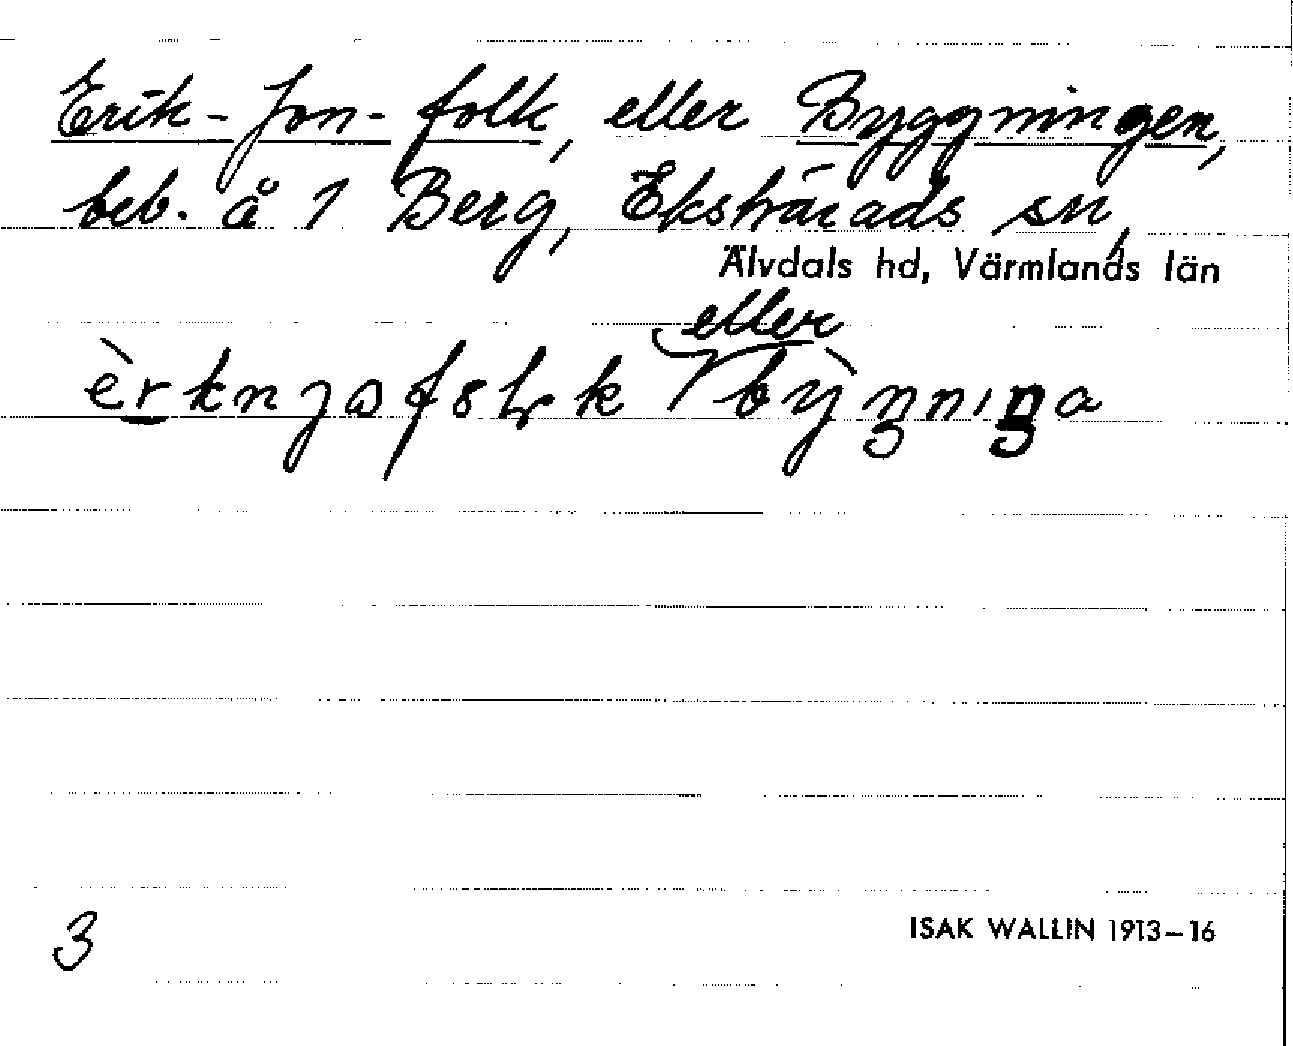 Erik-Jon-folk, eller Byggningen,
beb. å 1 Berg, Ekshärads sn,
Älvdals hd, Värmlands län
eller
bỳŋnıŋa
3
ISAK WALLIN 1913–16